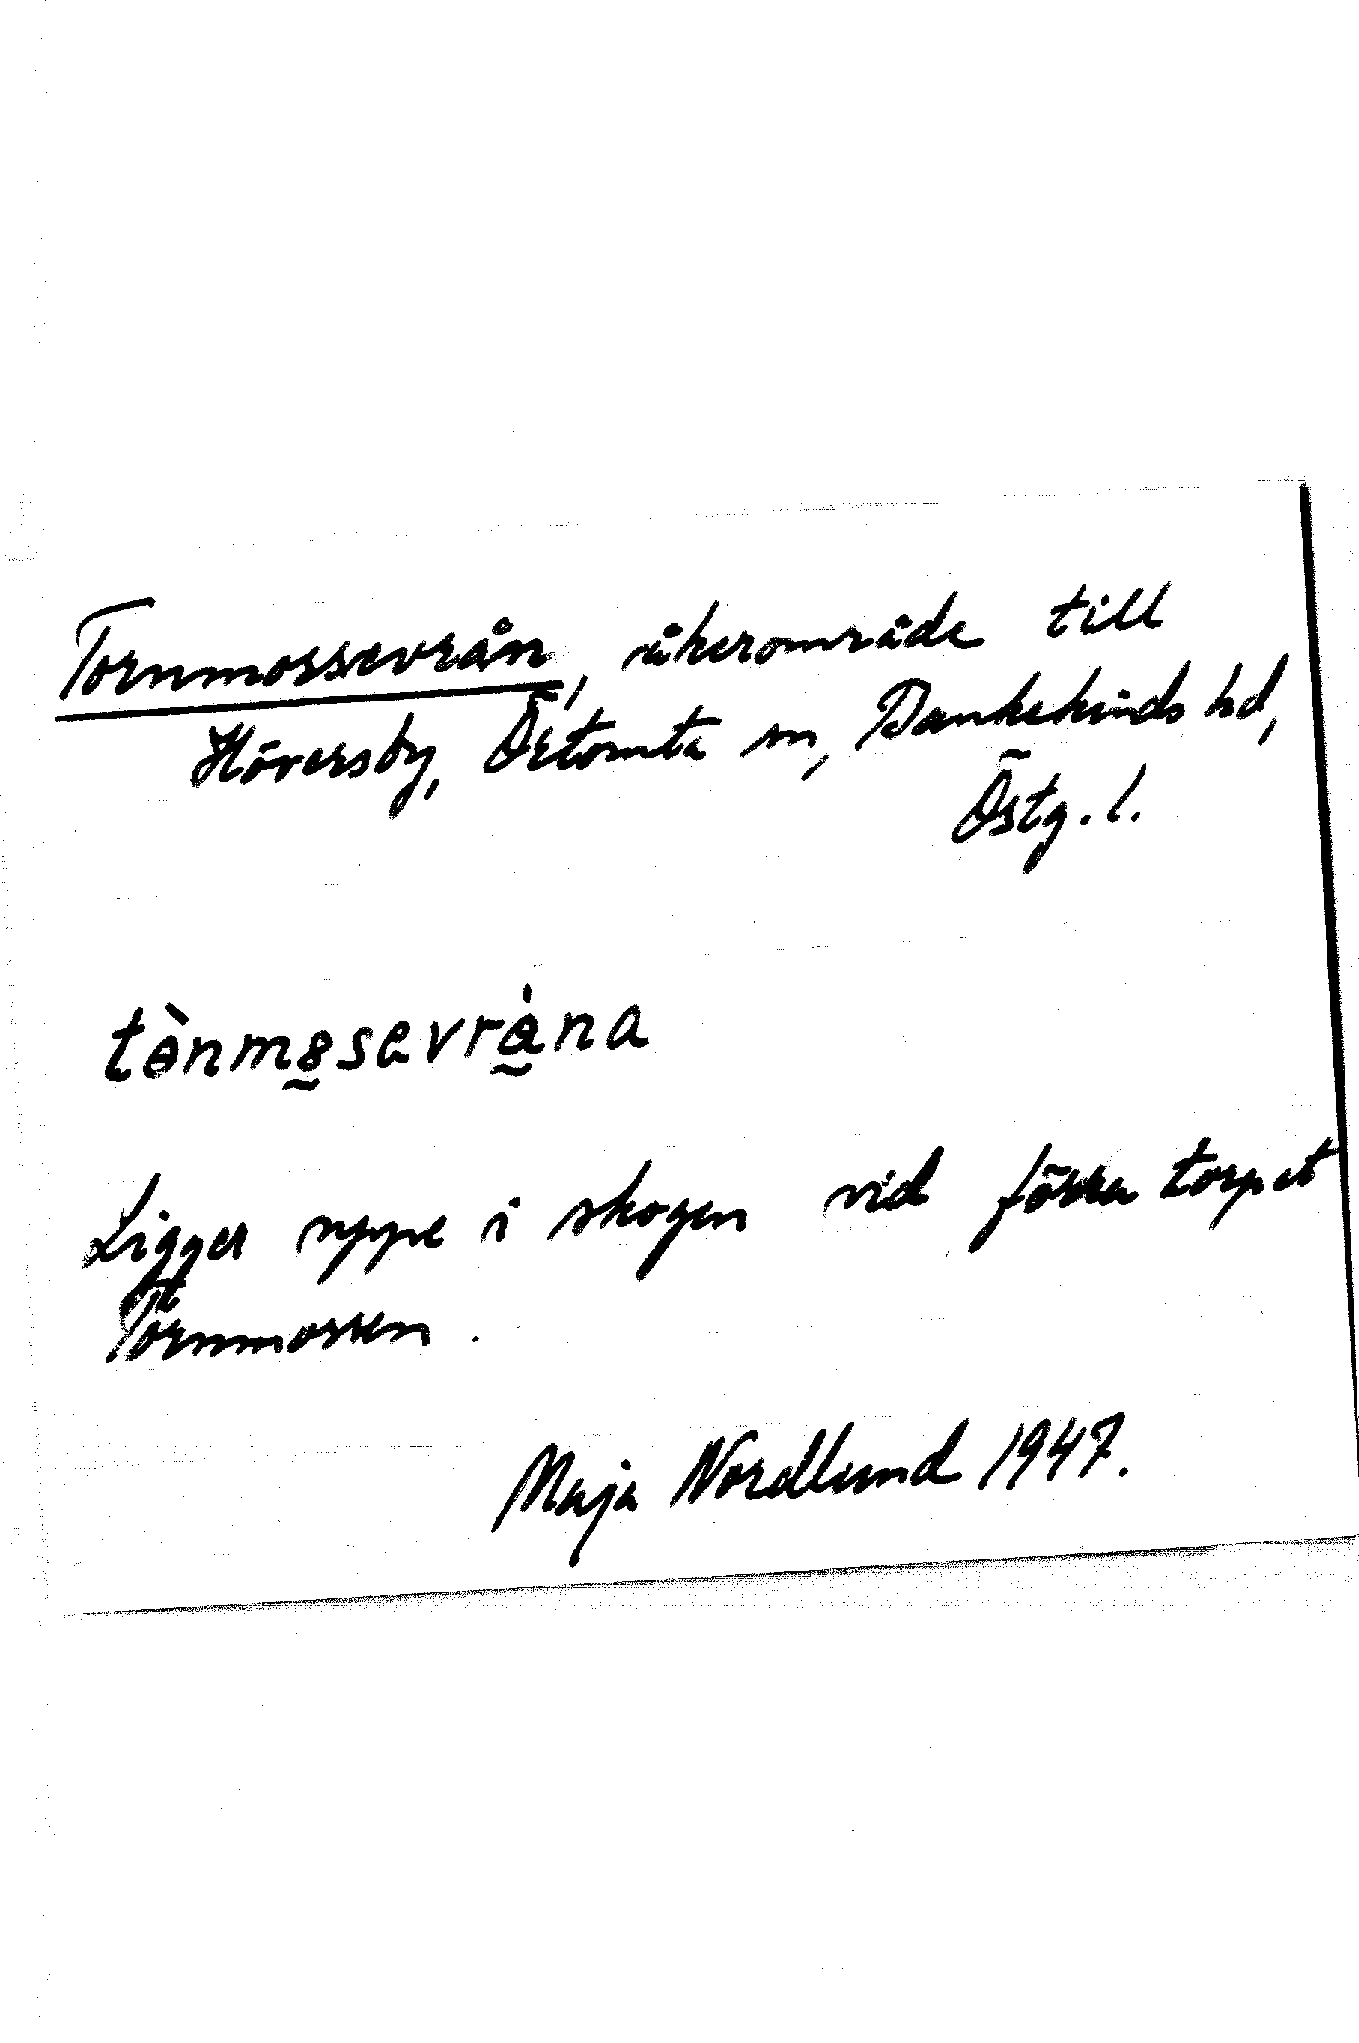 Tornmossevrån, åkerområde till
Höversby, Östomta sn, Bankekinds hd,
Östg. l.
tɵ̀nmo̰sevrǻ̰na
Ligger uppe i skogen vid förra torpet
Tornmossen.
Maja Nordlund 1947.